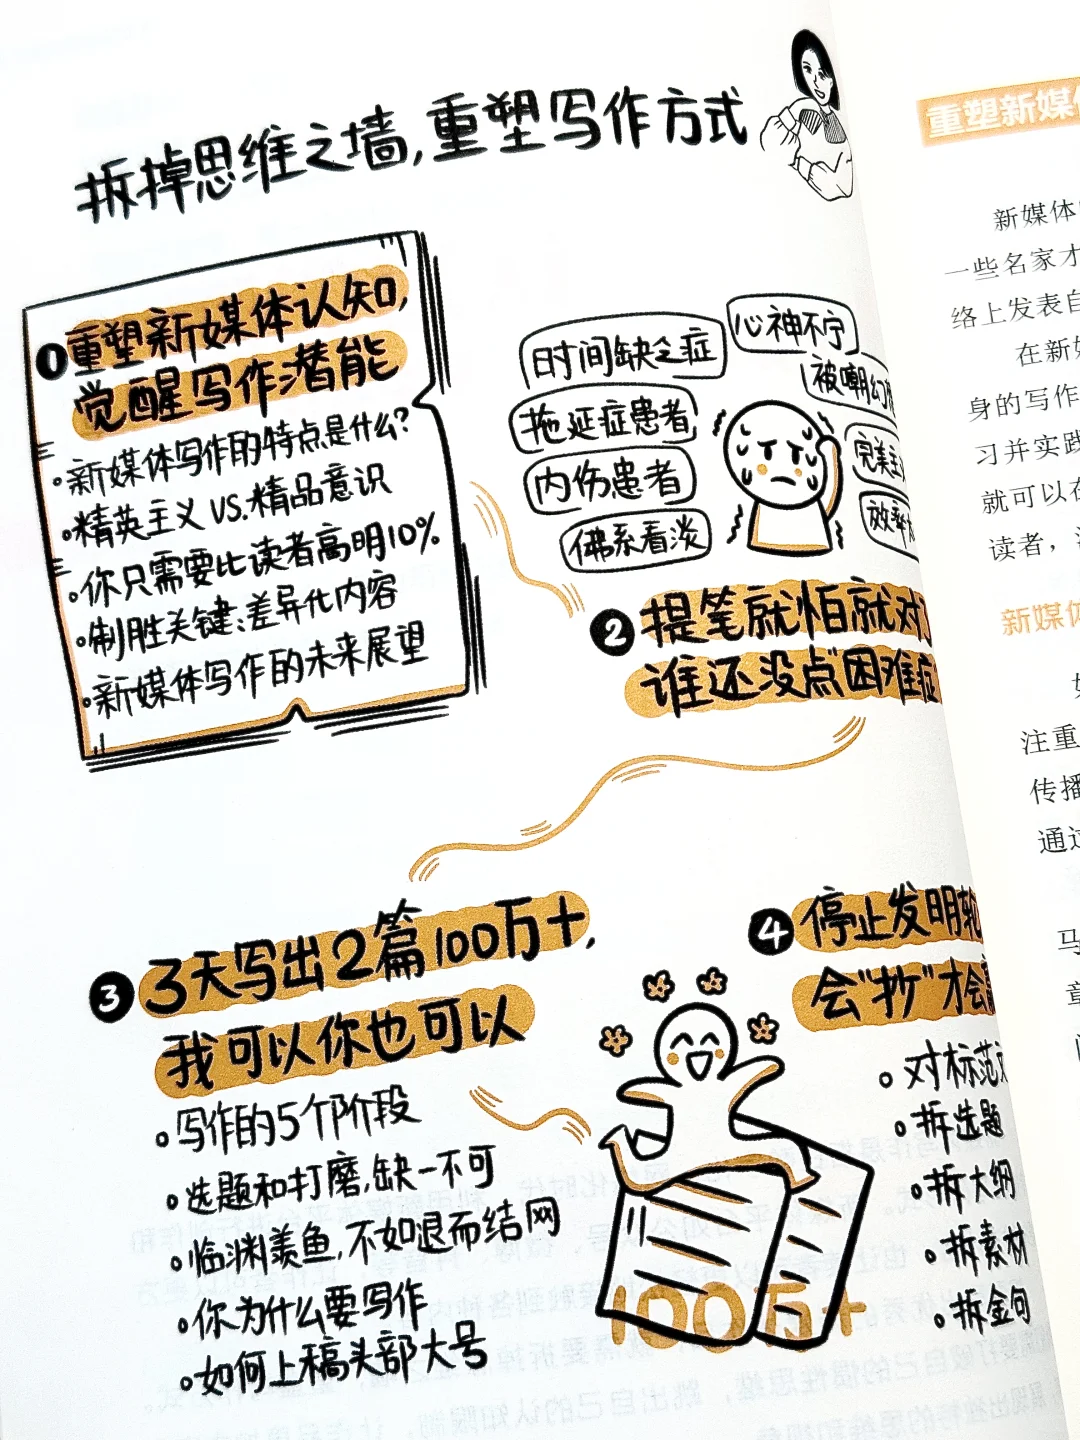 拆掉思维之墙,重塑写作方式
1 重塑新媒体认知,
觉醒写作潜能
新媒体写作的特点是什么?
精英主义 VS.精品意识
你只需要比读者高明10%
制胜关键:差异化内容
新媒体写作的未来展望
时间缺乏症
心神不宁
被嘲幻
拖延症患者
完美主
内伤患者
效率
佛系看淡
2 提笔就怕就对了
谁还没点困难症
3 3天写出2篇100万+,
我可以你也可以
写作的5个阶段
选题和打磨,缺一不可
临渊羡鱼,不如退而结网
你为什么要写作
如何上稿头部大号
100万+
4 停止发明轮
会"抄"才会
对标范文
拆选题
拆大纲
拆素材
拆金句
重塑新媒体
新媒体
一些名家才
络上发表自
在新媒
身的写作
习并实践
就可以在
读者,
新媒体
注重
传播
通过